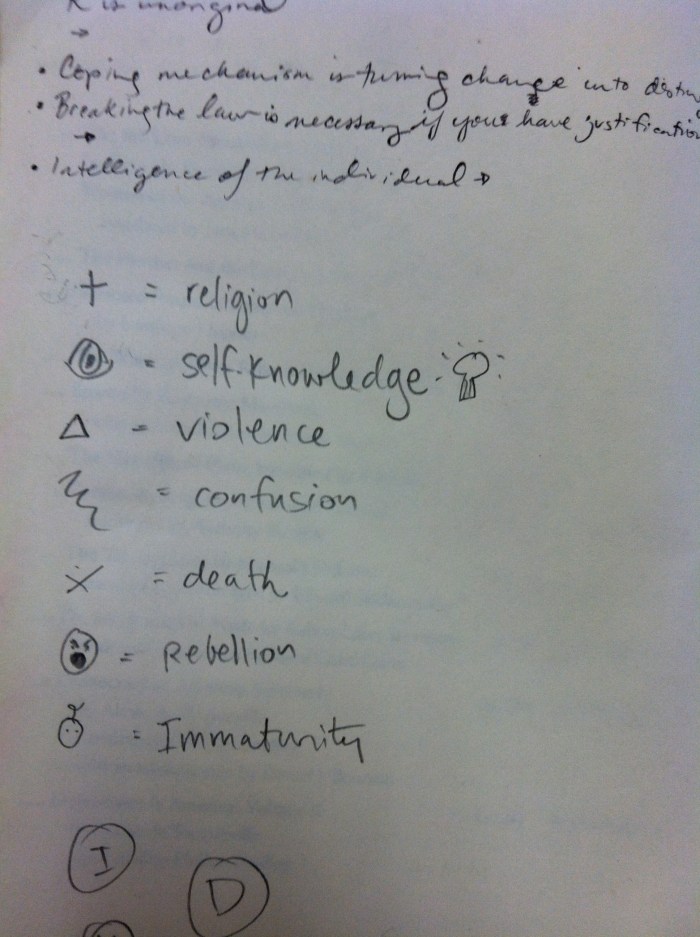 is unoriginal
→
• Coping mechanism is turning change into
• Breaking the law is necessary if you have justification
→
• Intelligence of the individual →
+ = religion
= self-knowledge
Δ = violence
= confusion
= death
= Rebellion
= Immaturity
I
D